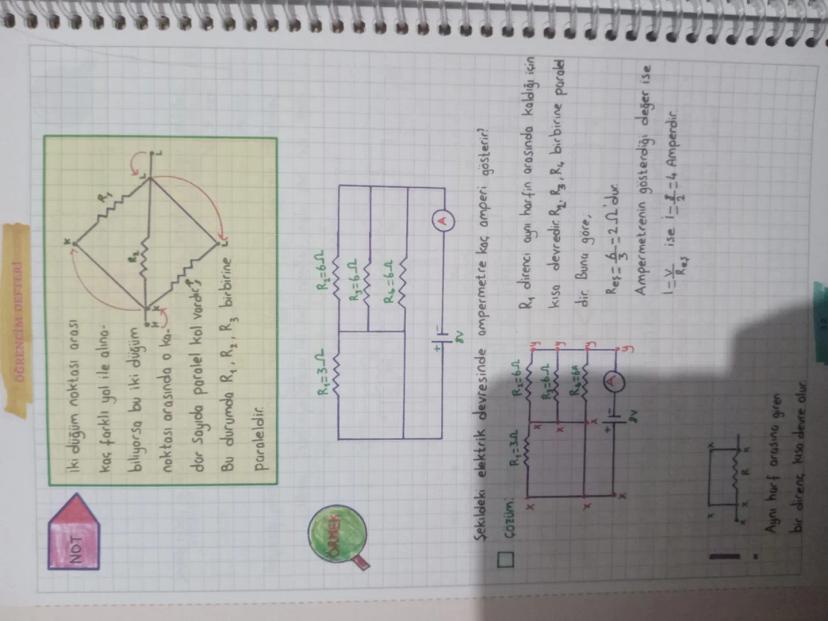 ÖĞRENCİM DEFTERİ
NOT
İki düğüm noktası arası
kaç farklı yol ile alına-
biliyorsa bu iki düğüm
noktası arasında o ka-
dar sayıda paralel kol vardır.
Bu durumda R1, R2, R3 birbirine
paraleldir.
K
R1
R2
L
L
K
K
L
ÖRNEK
R1=3Ω
R2=6Ω
R3=6Ω
R4=6Ω
+
8V
A
Şekildeki elektrik devresinde ampermetre kaç amperi gösterir?
Çözüm:
R1=3Ω
R2=6Ω
R3=6Ω
R4=6Ω
x
x
x
x
x
x
y
y
y
y
+
8V
A
R1 direnci aynı harfin arasında kaldığı için
kısa devredir. R2, R3, R4 birbirine paralel
dir. Buna göre,
Reş=6/3=2Ω'dur.
Ampermetrenin gösterdiği değer ise
I=V/Reş ise I=8/2=4 Amperdir.
x
x
x
x
R
x
x
Aynı harf arasına giren
bir direnç kısa devre olur.